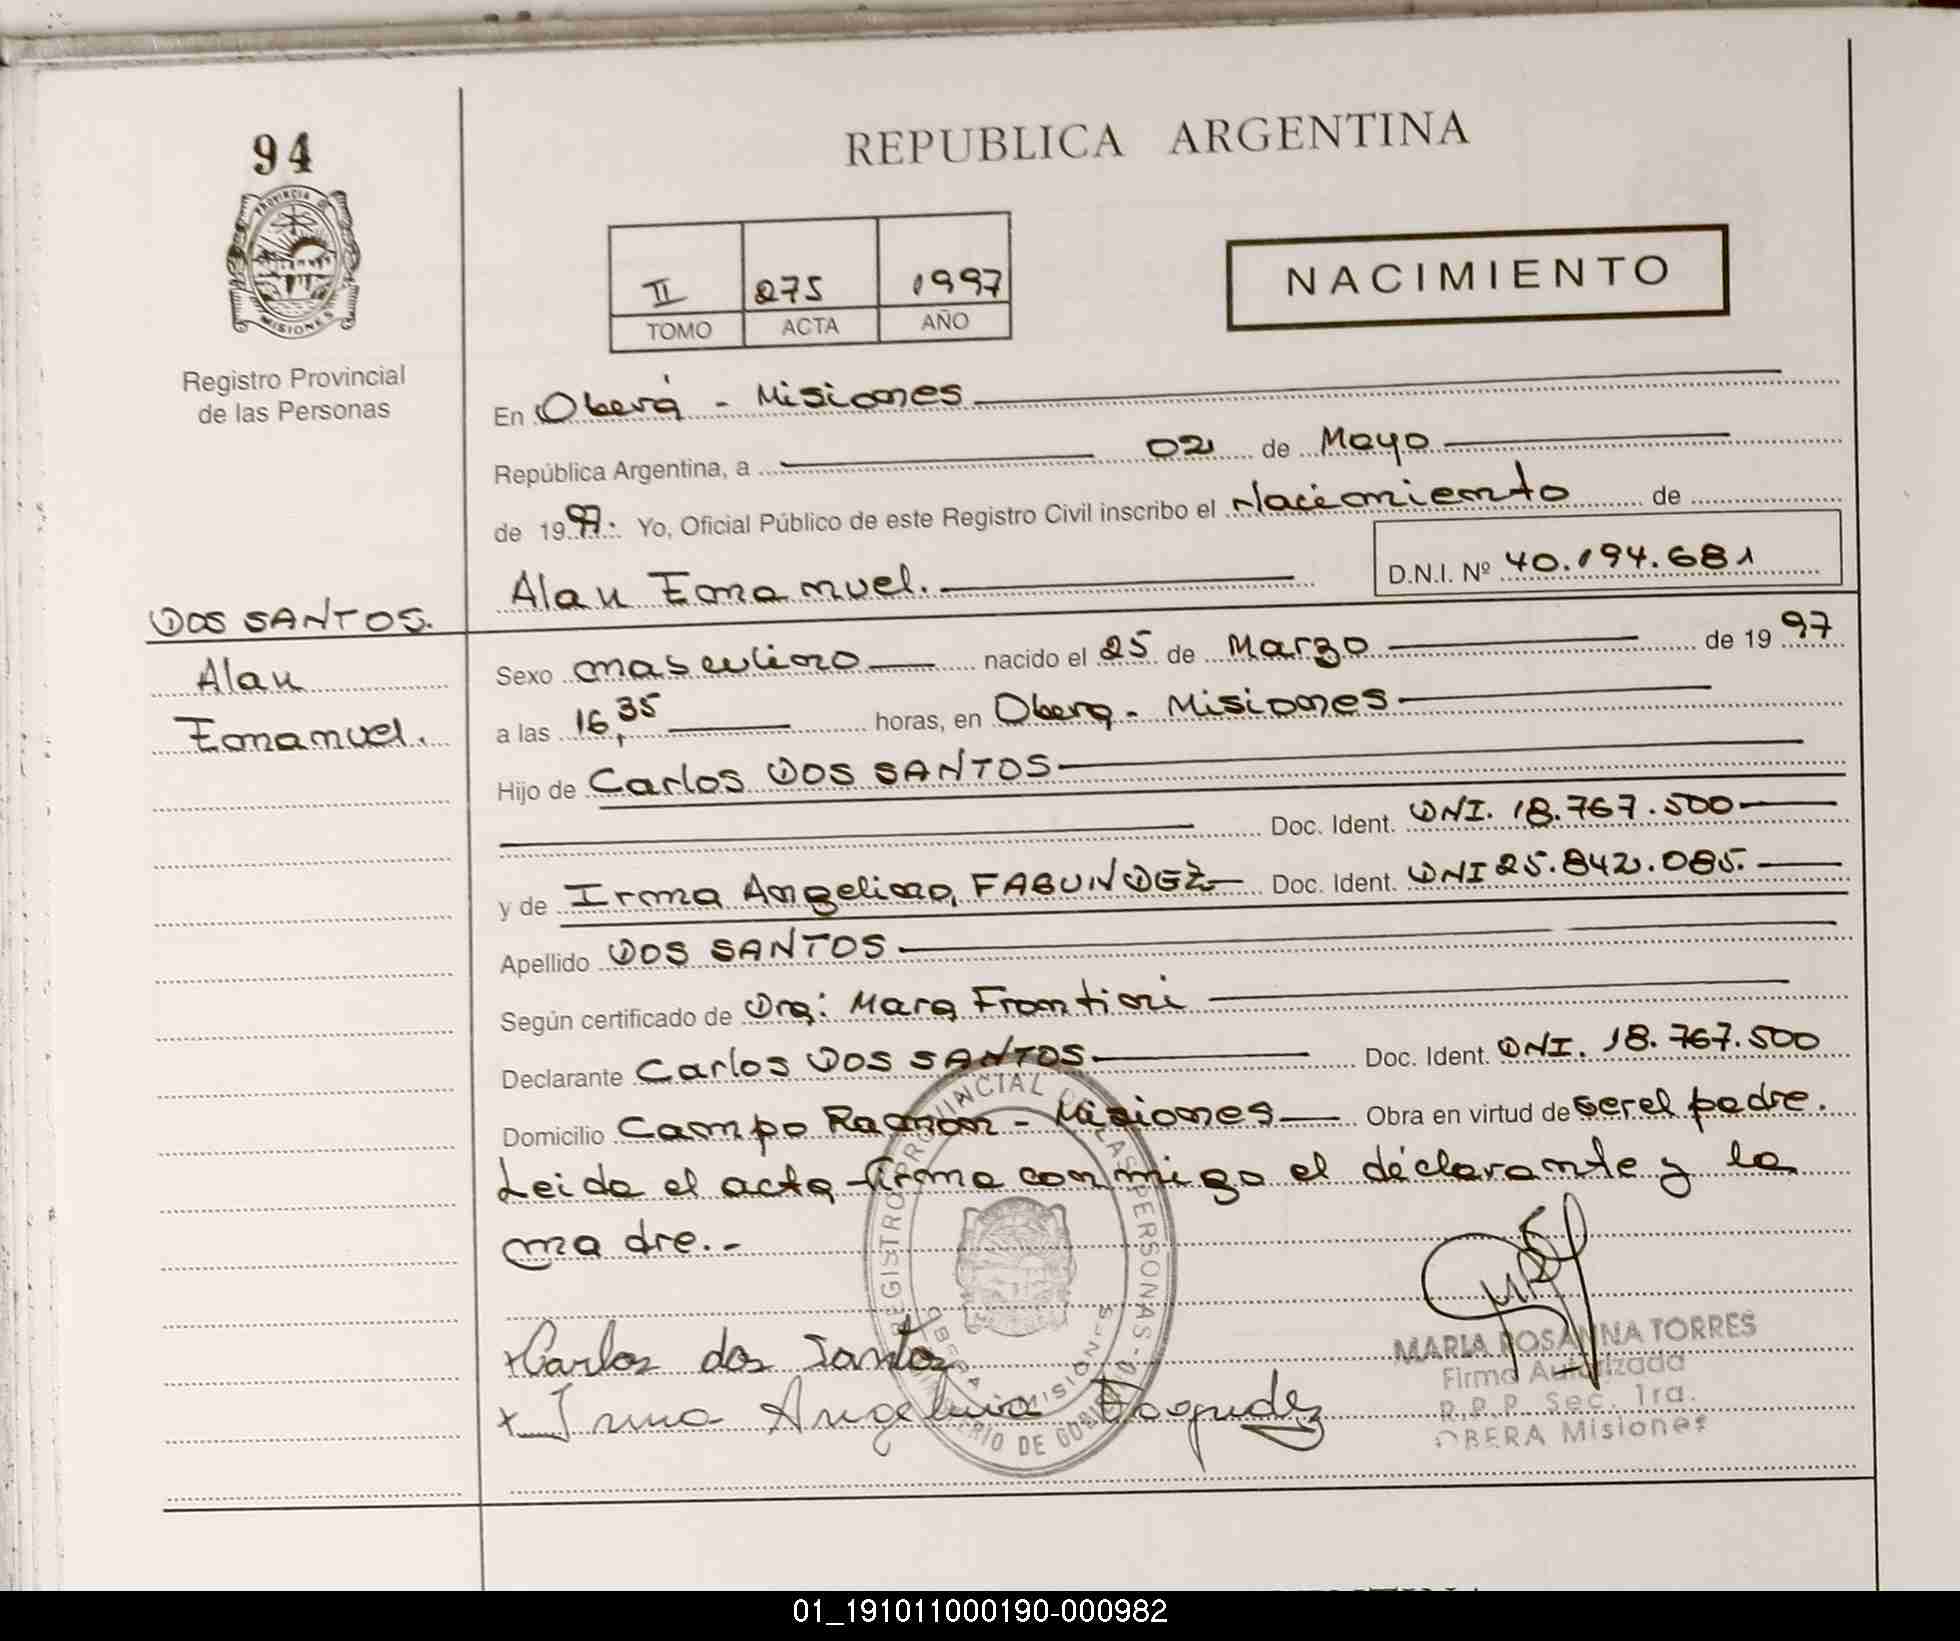 94
PROVINCIA D
MISIONES
Registro Provincial
de las Personas
REPUBLICA ARGENTINA
II 275 1997
TOMO ACTA AÑO
NACIMIENTO
En Oberá - Misiones
República Argentina, a 02 de Mayo
de 1997. Yo, Oficial Público de este Registro Civil inscribo el Nacimiento de
Alan Emanuel. D.N.I. Nº 40.194.681
DOS SANTOS.
Alan
Emanuel.
Sexo masculino nacido el 25 de Marzo de 1997
a las 16,35 horas, en Obera - Misiones
Hijo de Carlos DOS SANTOS
Doc. Ident. DNI. 18.767.500
y de Irma Angelina, FAGUNDEZ Doc. Ident. DNI 25.842.085.
Apellido DOS SANTOS
Según certificado de Dra: Mara Frontini
Declarante Carlos DOS SANTOS Doc. Ident. DNI. 18.767.500
Domicilio Campo Ramon - Misiones Obra en virtud de ser el padre.
Leida el acta firma conmigo el declarante y la
madre.-
REGISTRO PROVINCIAL DE LAS PERSONAS
OBERA MISIONES
MINISTERIO DE GOBIERNO
+Carlos dos Santos
+ Irma Angelina Fagundez
MARIA ROSANNA TORRES
Firma Autorizada
R.P.P. Sec. 1ra.
OBERA Misiones
01_191011000190-000982